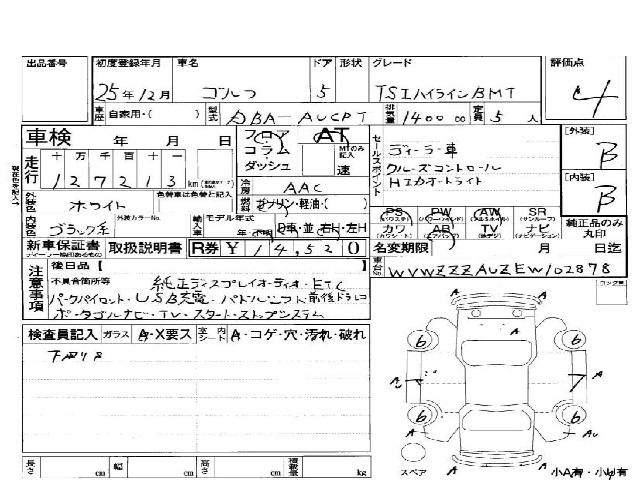 出品番号 初度登録年月 車名 ドア 形状 グレード 評価点
25年12月 ゴルフ 5 TSIハイラインBMT 4
車歴 自家用・( ) 型式 DBA-AUCPT 排気量 1400 cc 定員 5 人
車検 年 月 日 フロア AT セールスポイント ディーラー車 [外装] B
現在色を記入→ 走行 十 万 千 百 十 一 コラム MTのみ記入 クルーズコントロール
1 2 7 2 1 3 km ダッシュ 速 HIDオートライト [内装] B
外装色 ホワイト 色替車は色替と記入 冷房 AAC
燃料 ガソリン・軽油・( ) PS PW AW SR 純正品のみ丸印
内装色 ブラック系 外装カラーNo. 輸入車 モデル年式 年 D車・並 右H・左H カワ AB TV ナビ
新車保証書 取扱説明書 R券 ¥ 14,520 名変期限 月 日迄
注意事項 後日品【 】 車台No. WVWZZZAUZEW102878
不具合箇所等 純正ディスプレイオーディオ・ETC
パークパイロット・USB充電・パドルシフト 前後ドラレコ
ポータブルナビ・TV・スタートストップシステム
検査員記入 ガラス A・X要ス 室内 シート A・コゲ・穴・汚れ・破れ
下廻りS
A
6 6
A A
7
6 6
A A AU
A
スペア 小A有・小U有
長さ cm 幅 cm 高さ cm 積載量 kg